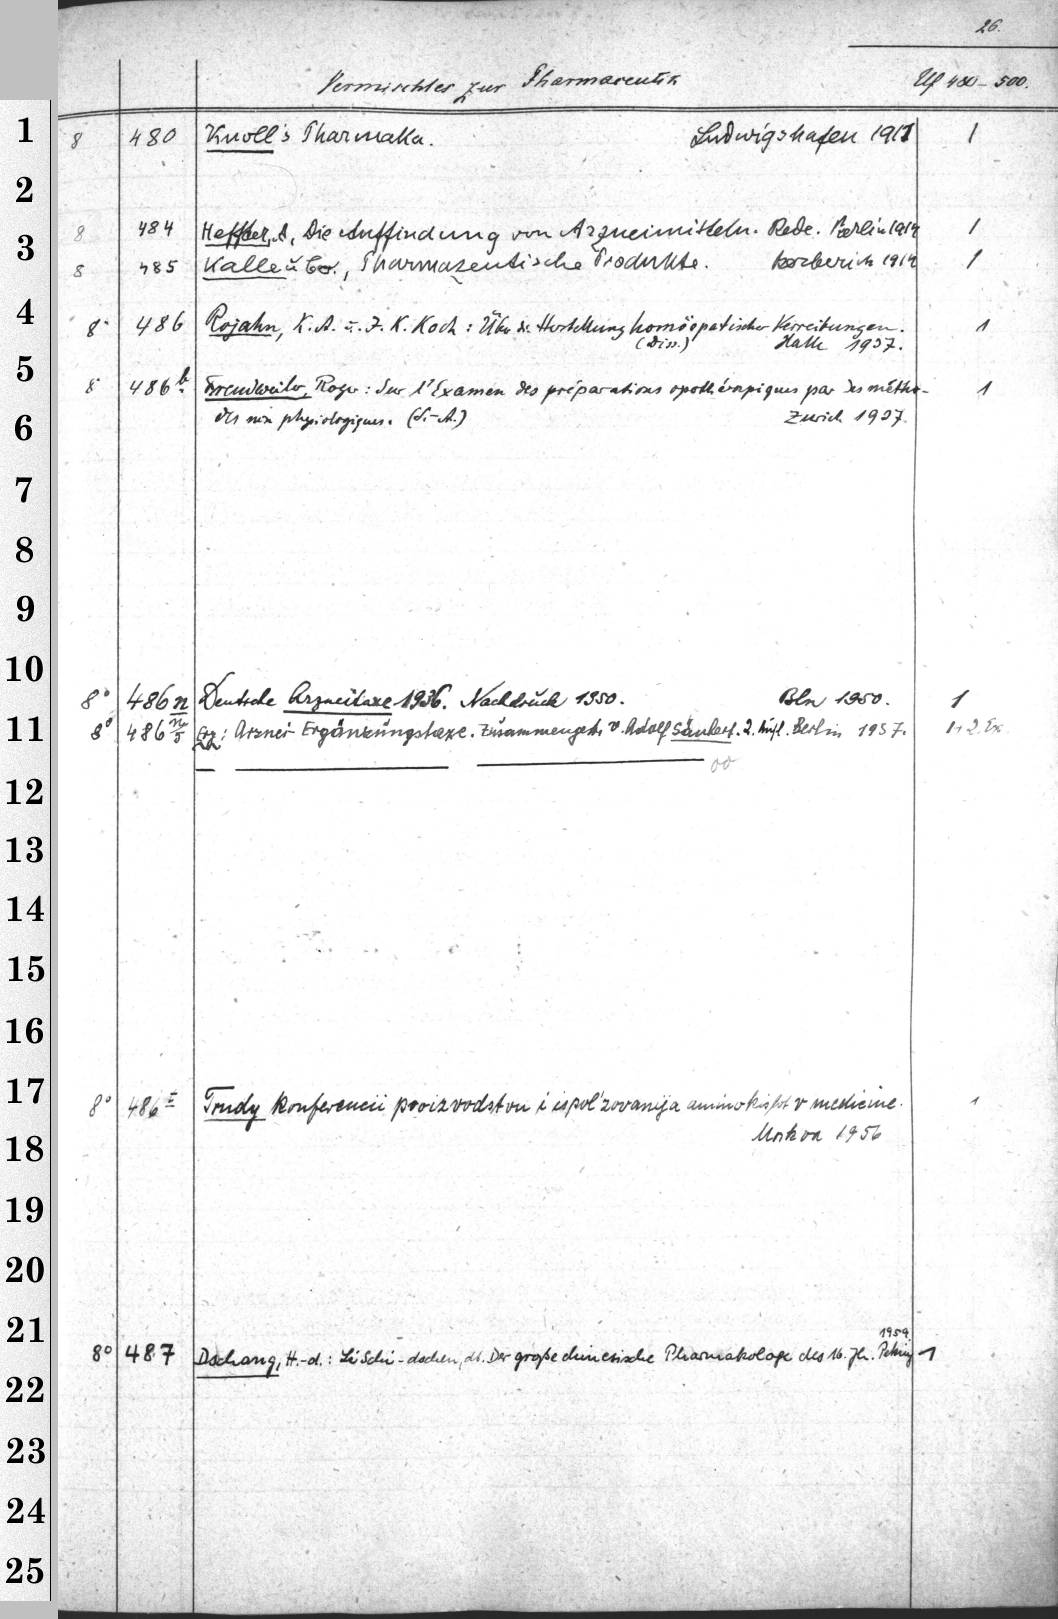 26.
Vermischtes zur Pharmaceutik Uf 480-500.
1 8 480 Knoll's Pharmaka. Ludwigshafen 1911 1
2
8 484 Heffter, A, Die Auffindung von Arzneimitteln. Rede. Berlin 1914 1
3 8 485 Kalle u Co., Pharmazeutische Produkte. 1914 1
4 8° 486 Rojahn, K. A. u. J. K. Koch: Über die Herstellung homöopatischer Verreibungen. 1
(Diss.) Halle 1937.
5 8° 486 b Roger: Sur l'Examen des préparations opothérapiques par des métho- 1
6 des non physiologiques. (S.-A.) Zürich 1937.
7
8
9
10 8° 486 n Deutsche Arzneitaxe 1936. Nachdruck 1950. Bln 1950. 1
11 8° 486 n/5 Erg: Arznei-Ergänzungstaxe. Zusammengest. v. Adolf 2. Aufl. Berlin 1957. 1+2. Ex.
12
13
14
15
16
17 8° 486 Trudy konferencii proizvodstvu i ispol'zovanija aminokislot v medicine. 1
18 Moskva 1956
19
20
21 1959
8° 487 Dschang, H.-d.: Li Schi-dschen, dt. Der große chinesische Pharmakologe des 16. Jh. Peking 1
22
23
24
25